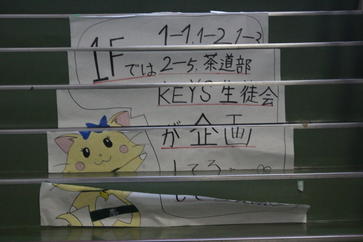 1-1, 1-2, 1-3
1Fでは 2-5, 茶道部
KEYS 生徒会
が 企画
してる